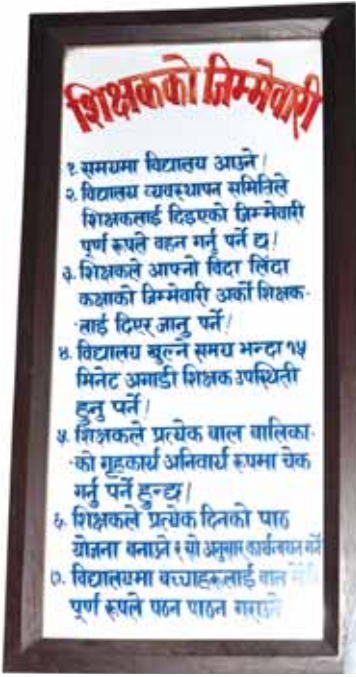 शिक्षकको जिम्मेवारी
१. समयमा विद्यालय आउने ।
२. विद्यालय व्यवस्थापन समितिले
शिक्षकलाई दिइएको जिम्मेवारी
पूर्ण रूपले वहन गर्नु पर्ने छ ।
३. शिक्षकले आफ्नो विदा लिंदा
कक्षाको जिम्मेवारी अर्को शिक्षक-
-लाई दिएर जानु पर्ने ।
४. विद्यालय खुल्ने समय भन्दा १५
मिनेट अगाडी शिक्षक उपस्थिती
हुनु पर्ने ।
५. शिक्षकले प्रत्येक बाल बालिका-
-को गृहकार्य अनिवार्य रूपमा चेक
गर्नु पर्ने हुन्छ ।
६. शिक्षकले प्रत्येक दिनको पाठ
योजना बनाउने र यो अनुसार कार्यन्वयन गर्ने
७. विद्यालयमा बच्चाहरूलाई बाल मैत्री
पूर्ण रूपले पठन पाठन गराउने